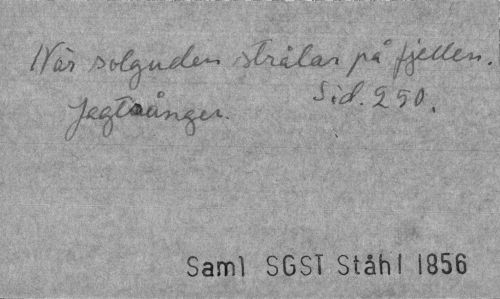 När solguden strålar på fjellen.
Jagtsånger. Sid. 290.
Saml SGST Ståhl 1856